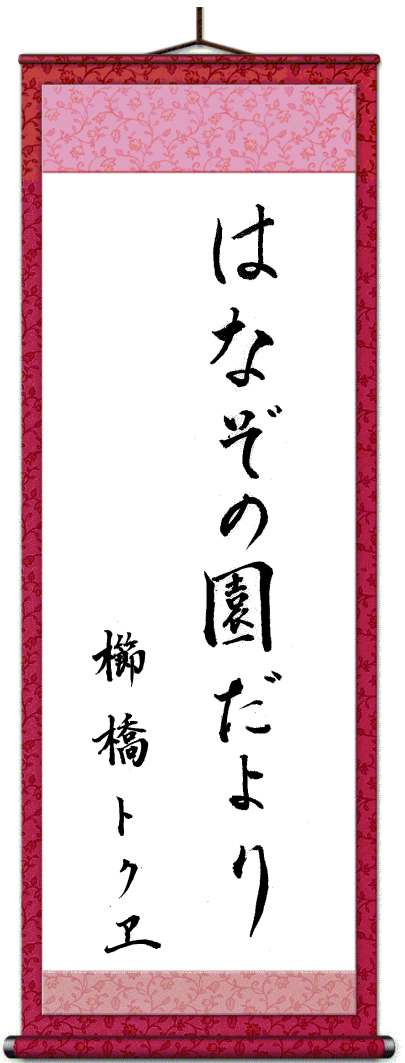 はなぞの園だより
櫛橋トクヱ